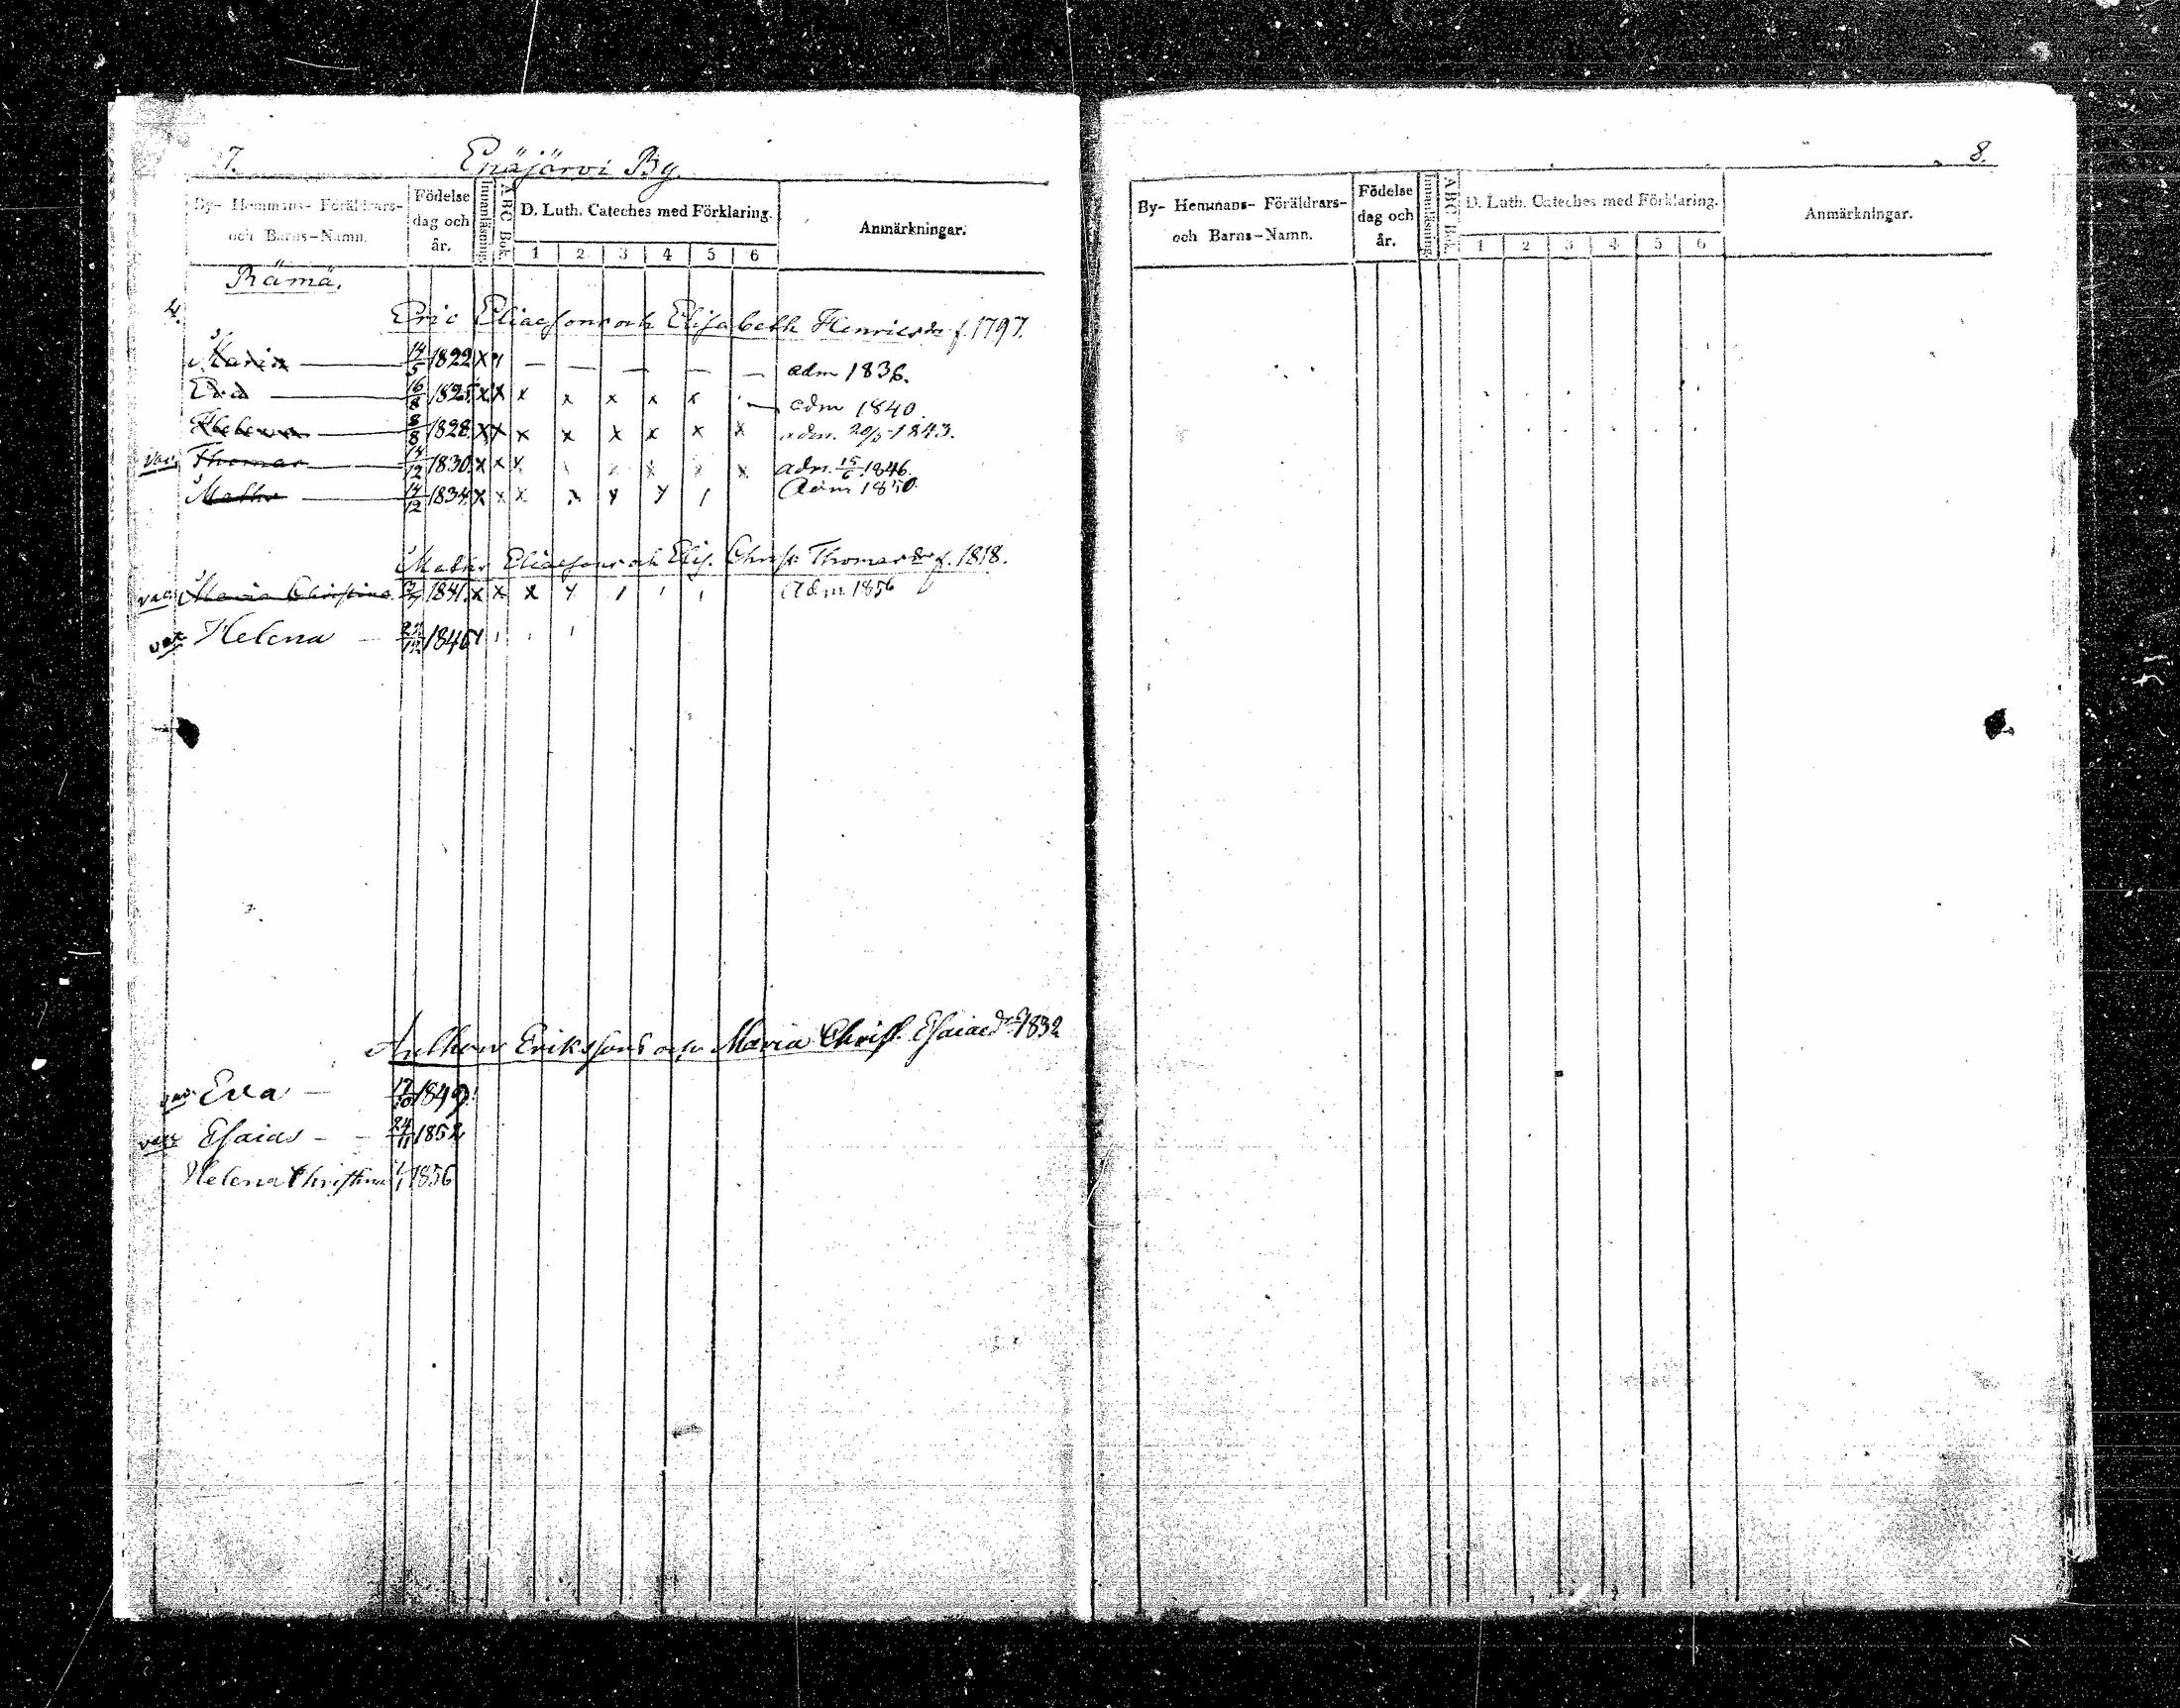 7. Enäjärvi By
By- Hemmans- Föräldrars- och Barns-Namn. Födelse dag och år. Innanläsning. ABC Bok. D. Luth. Cateches med Förklaring. 1 2 3 4 5 6 Anmärkningar.
Rämä.
4.
Eric Eliaesons och Elisabeth Henricsdr f. 1797.
Maria 14/5 1822 x — — — — — — adm 1836.
Eva 16/8 1825. x x x x x x x — adm 1840.
Helena 8/8 1828. x x x x x x x x adm. 20/5 1843.
vac. Thomas 14/12 1830. x x x x x adm. 15/6 1846.
Maths 14/12 1834. x x x x Adm 1850
Maths Eliaesons och Elis. Christ. Thomasdr f. 1818.
vac Maria Christina 1841. x x x Adm 1856
vac Helena 1846
Anthons Erikssons och Maria Christ. Esaiaedr 1832
vac Eva — 17/10 1849.
vac Esaias - - 24/11 1852
Helena Christina 1856
8.
By- Hemmans- Föräldrars- och Barns-Namn. Födelse dag och år. Innanläsning. ABC Bok. D. Luth. Cateches med Förklaring. 1 2 3 4 5 6 Anmärkningar.